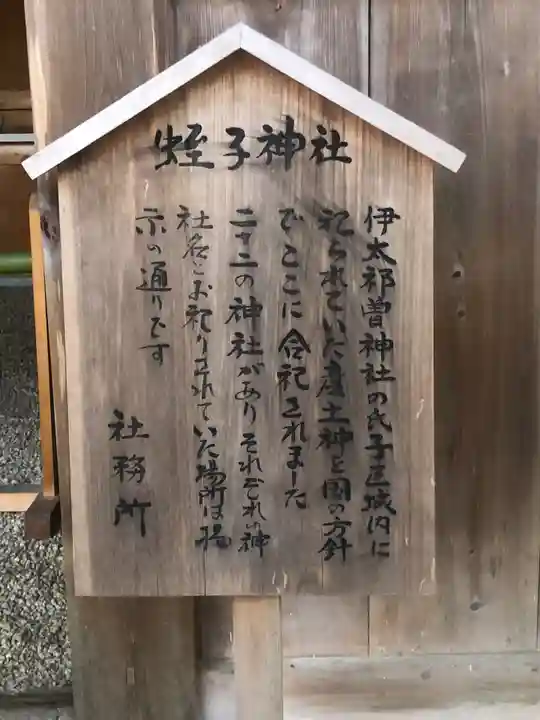 蛭子神社
伊太祁曽神社の氏子区域内に
祀られていた産土神を国の方針
でここに合祀されました
二十二の神社がありそれぞれの神
社名とお祀りされていた場所は掲
示の通りです
社務所